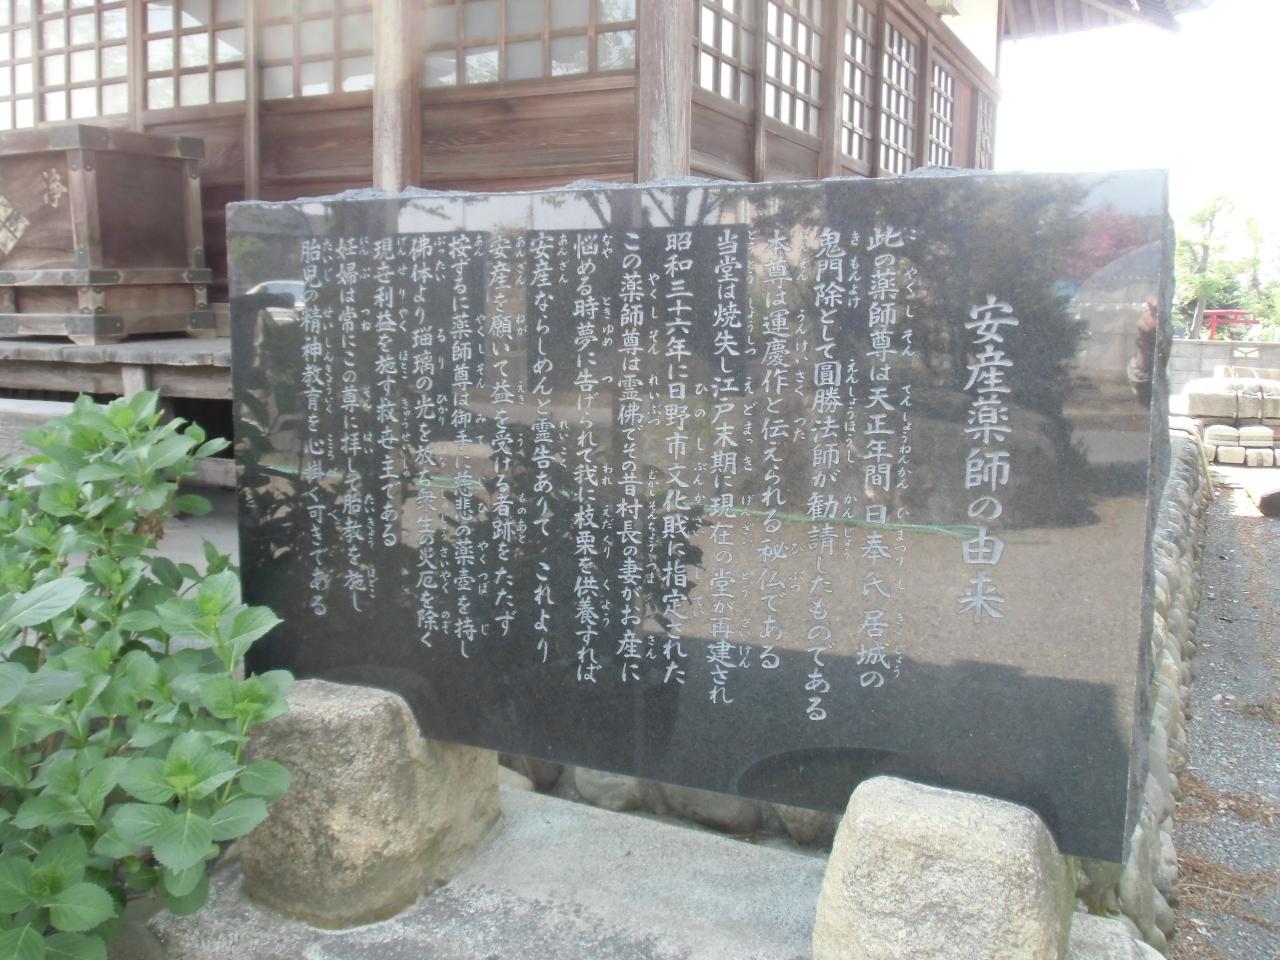 安産薬師の由来
此の薬師尊は天正年間日奉氏居城の
鬼門除として圓勝法師が勧請したものである
本尊は運慶作と伝えられる秘仏である
当堂は焼失し江戸末期に現在の堂が再建され
昭和三十六年に日野市文化財に指定された
この薬師尊は霊佛でその昔村長の妻がお産に
悩める時夢に告げられて我に枝栗を供養すれば
安産ならしめんと霊告ありて これより
安産を願いて益を受ける者跡をたたず
按するに薬師尊は御手に慈悲の薬壺を持し
佛体より瑠璃の光を放ち衆生の災厄を除く
現世利益を施す救世主である
妊婦は常にこの尊に拝して胎教を施し
胎児の精神教育を心掛く可きである
浄